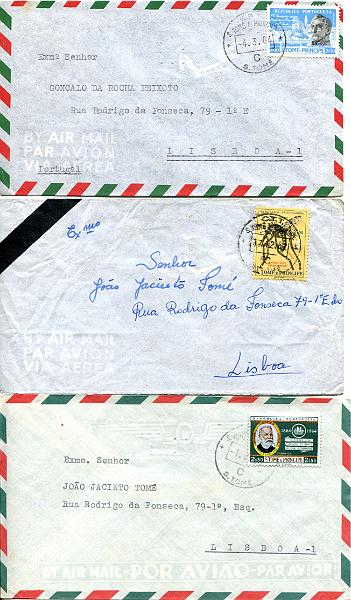 REPÚBLICA PORTUGUESA
S. TOMÉ E PRINCIPE
-4.3.64
C
S. TOMÉ
Exmº Senhor
GONCALO DA ROCHA PEIXOTO
Rua Rodrigo da Fonseca, 79 - 1º E
BY AIR MAIL
PAR AVION
VIA AEREA
L I S B O A - 1
Portugal
TOMÉ E PRINCIPE
Exmo
Senhor
João Jacinto Tomé
Rua Rodrigo da Fonseca 79-1º E.do
Lisboa
BY AIR MAIL
PAR AVION
VIA AEREA
REPÚBLICA PORTUGUESA
1864 1964
2$50 S.TOMÉ E PRINCIPE 2$50
C
S. TOMÉ
Exmo. Senhor
JOÃO JACINTO TOMÉ
Rua Rodrigo da Fonseca, 79-1º, Esq.
L I S B O A - 1
BY AIR MAIL - POR AVIÃO - PAR AVION